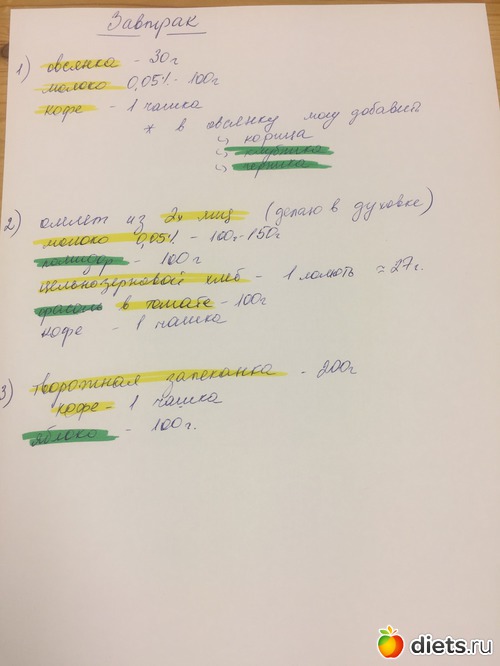 Завтрак
1) овсянка - 30г
молоко 0,05% - 100г
кофе - 1 чашка
* в овсянку могу добавить
↳ корица
↳ клубника
↳ черника
2) омлет из 2х яиц (делаю в духовке)
молоко 0,05% - 100г-150г
помидор - 100г
цельнозерновой хлеб - 1 ломоть ≈ 27г.
фасоль в томате - 100г
кофе - 1 чашка
3) творожная запеканка - 200г
кофе - 1 чашка
яблоко - 100г.
diets.ru